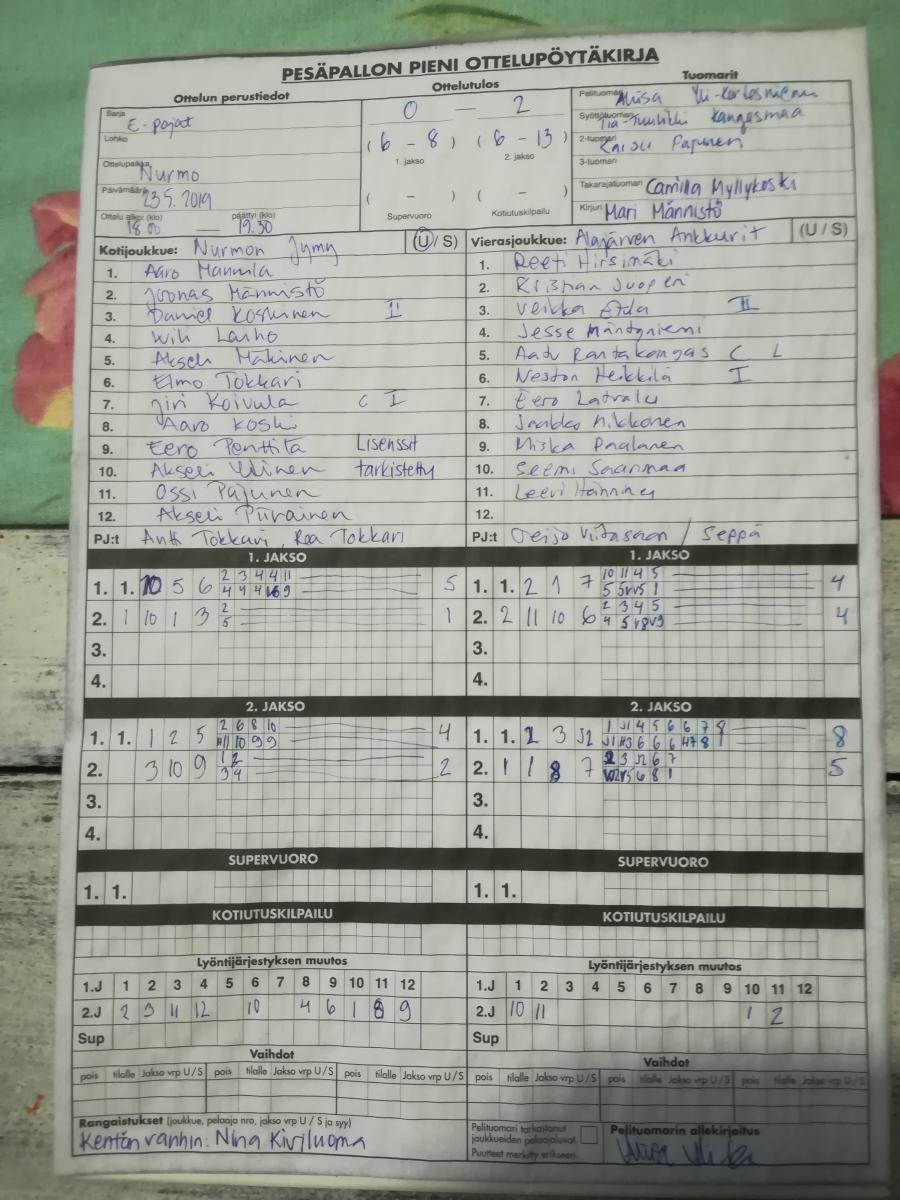 PESÄPALLON PIENI OTTELUPÖYTÄKIRJA
Ottelun perustiedot
Ottelutulos
Tuomarit
Sarja E-pojat
Lohko
Ottelupaikka Nurmo
Päivämäärä 23.5.2019
Ottelu alkoi (klo) 18.00 — päättyi (klo) 19.30
0 — 2
(6 - 8) (6 - 13)
1. jakso 2. jakso
( - ) ( - )
Supervuoro Kotiutuskilpailu
Pelituomari
Syöttötuomari Tiia-Tuulikki Kangasmaa
2-tuomari Pajunen
3-tuomari
Takarajatuomari Camilla Myllykoski
Kirjuri Mari Männistö
Kotijoukkue: Nurmon Jymy (U / S)
1. Aaro Mannila
2. Joonas Männistö
3. Daniel Koskinen II
4. Laiho
5. Akseli Mäkinen
6. Elmo Tokkari
7. Jiri Koivula C I
8. Aaro Koski
9. Eero Penttilä Lisenssit
10. Akseli tarkistettu
11. Ossi Pajunen
12. Akseli Piirainen
PJ:t Antti Tokkari, Roa Tokkari
Vierasjoukkue: Alajärven Ankkurit (U / S)
1. Reeti Hirsimäki
2. Kristian
3. Veikka II
4. Jesse Mäntyniemi
5. Aatu Rantakangas C L
6. Heikkilä I
7. Eero Latvala
8. Jaakko Nikkonen
9. Miska Paalanen
10. Seemi Saarimaa
11. Leevi Hänninen
12.
PJ:t / Seppä
1. JAKSO
1. 1. 10 5 6
2 3 4 4 11
5
2. 1 10 1 3
2
5
1
3.
4.
1. JAKSO
1. 1. 2 1 7
10 11 4 5
4
2. 2 11 10 6
2 3 4 5
4
3.
4.
2. JAKSO
1. 1. 1 2 5
2 6 8 10
4
2. 3 10 9
1 2
3 4
2
3.
4.
2. JAKSO
1. 1. 2 3 J2
1 J1 4 5 6 6 7 8
8
2. 1 1 8 7
2 3 J2 6 7
5
3.
4.
SUPERVUORO
1. 1.
SUPERVUORO
1. 1.
KOTIUTUSKILPAILU
KOTIUTUSKILPAILU
Lyöntijärjestyksen muutos
1.J 1 2 3 4 5 6 7 8 9 10 11 12
2.J 2 3 11 12 10 4 6 1 8 9
Sup
Lyöntijärjestyksen muutos
1.J 1 2 3 4 5 6 7 8 9 10 11 12
2.J 10 11 1 2
Sup
Vaihdot
pois tilalle Jakso vrp U / S pois tilalle Jakso vrp U / S pois tilalle Jakso vrp U / S
Vaihdot
pois tilalle Jakso vrp U / S pois tilalle Jakso vrp U / S pois tilalle Jakso vrp U / S
Rangaistukset (joukkue, pelaaja nro, jakso vrp U / S ja syy)
Kentän vanhin: Nina Kiviluoma
Pelituomari tarkastanut
joukkueiden pelaajaluvat.
Puutteet merkitty erikseen.
Pelituomarin allekirjoitus